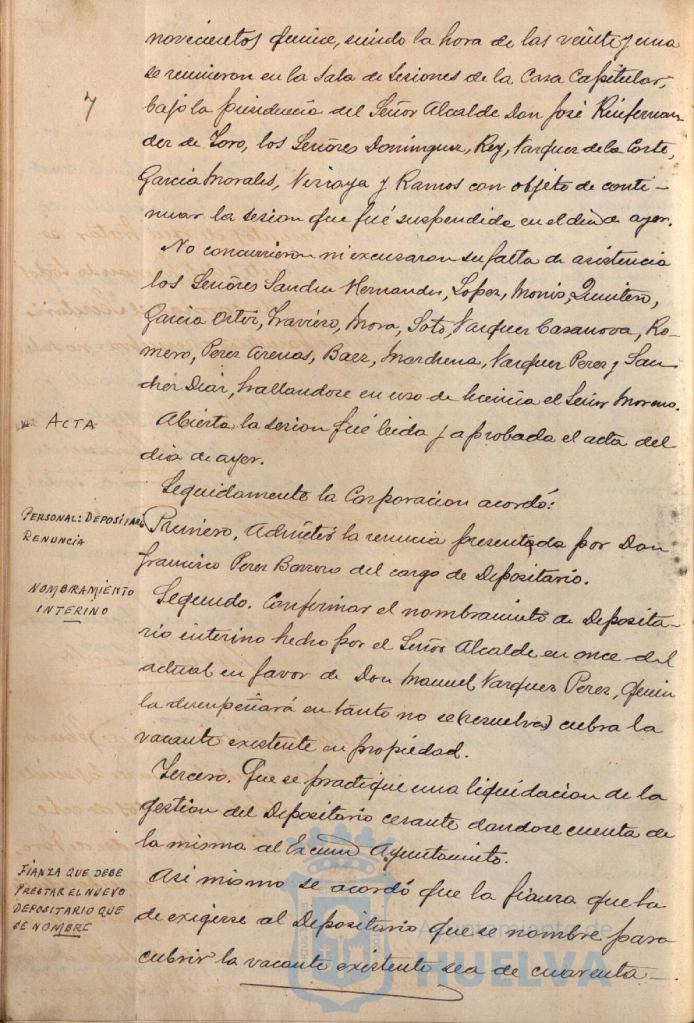 novecientos quince, siendo la hora de las veinte y una
se reunieron en la Sala de Sesiones de la Casa Capitular,
7
bajo la presidencia del Señor Alcalde Don José
der de Toro, los Señores Dominguez, Rey, Vazquez de la Corte,
Garcia Morales, y Ramos con objeto de conti-
nuar la sesion que fué suspendida en el dia de ayer.
No concurrieron ni excusaron su falta de asistencia
los Señores Sanchez Hernandez, Lopez, Monis, Quintero,
Garcia Ortiz, Traviero, Mora, Soto, Vazquez Casanova, Ro-
mero, Perez Arenas, Baez, Marchena, Vazquez Perez y San-
chez Diaz, hallandose en uso de licencia el Señor Moreno.
ACTA
Abierta la sesion fué leida y aprobada el acta del
dia de ayer.
Seguidamente la Corporacion acordó:
PERSONAL: DEPOSITARIO
RENUNCIA
Primero. Admitir la renuncia presentada por Don
Francisco Perez Barroso del cargo de Depositario.
NOMBRAMIENTO
INTERINO
Segundo. Confirmar el nombramiento de Deposita-
rio interino hecho por el Señor Alcalde en once del
actual en favor de Don Manuel Vazquez Perez, quien
la desempeñará en tanto no se (resuelva) cubra la
vacante existente en propiedad.
Tercero. Que se practique una liquidacion de la
gestion del Depositario cesante dandose cuenta de
la misma al Excmo Ayuntamiento.
FIANZA QUE DEBE
PRESTAR EL NUEVO
DEPOSITARIO QUE
SE NOMBRE
Asi mismo se acordó que la fianza que ha
de exigirse al Depositario que se nombre para
cubrir la vacante existente sea de cuarenta
Ayuntamiento de
HUELVA